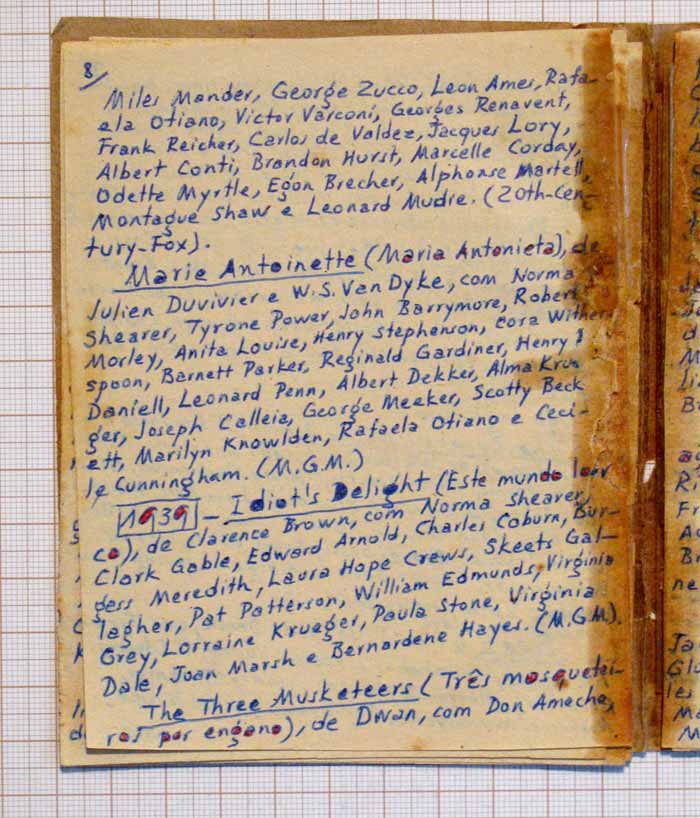 8/
Miles Mander, George Zucco, Leon Ames, Rafa-
ela Otiano, Victor Varconi, Georges Renavent,
Frank Reicher, Carlos de Valdez, Jacques Lory,
Albert Conti, Brandon Hurst, Marcelle Corday,
Odette Myrtle, Egon Brecher, Alphonse Martell,
Montague Shaw e Leonard Mudie. (20th-Cen-
tury-Fox).
Marie Antoinette (Maria Antonieta), de
Julien Duvivier e W.S. Van Dyke, com Norma
Shearer, Tyrone Power, John Barrymore, Robert
Morley, Anita Louise, Henry Stephenson, Cora Wither-
spoon, Barnett Parker, Reginald Gardiner, Henry
Daniell, Leonard Penn, Albert Dekker, Alma Kru-
ger, Joseph Calleia, George Meeker, Scotty Beck
ett, Marilyn Knowlden, Rafaela Otiano e Ceci-
le Cunningham. (M.G.M.)
1939 - Idiot's Delight (Este mundo lou-
co), de Clarence Brown, com Norma Shearer,
Clark Gable, Edward Arnold, Charles Coburn, Bur-
gess Meredith, Laura Hope Crews, Skeets Gal-
lagher, Pat Patterson, William Edmunds, Virginia
Grey, Lorraine Krueger, Paula Stone, Virginia
Dale, Joan Marsh e Bernardene Hayes. (M.G.M.).
The Three Musketeers (Três mosquetei-
ros por engano), de Dwan, com Don Ameche,